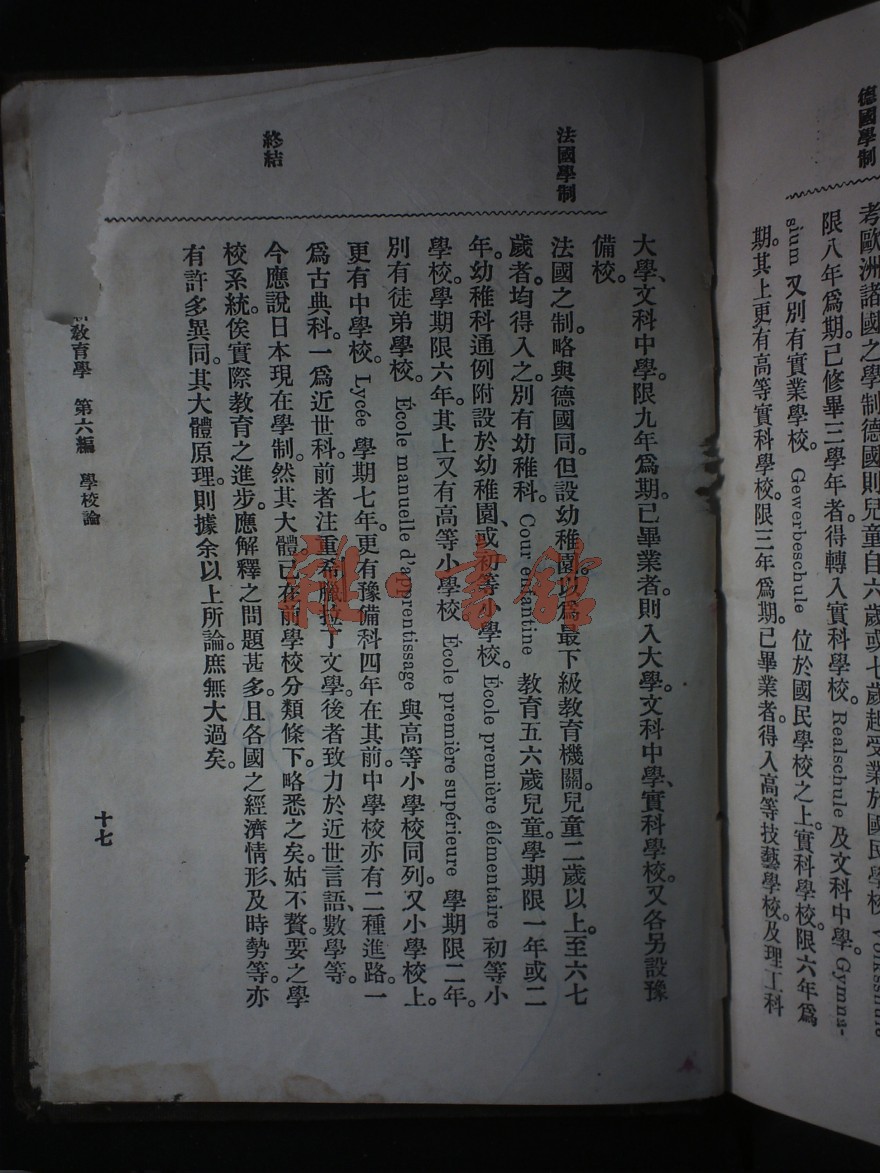 德國學制
考歐洲諸國之學制德國則兒童自六歲或七歲起受業於國民學校 Volksshule
限八年爲期。已修畢三學年者。得轉入實科學校。Realschule 及文科中學。Gymna-
sium 又別有實業學校。Gewerbeschule 位於國民學校之上。實科學校。限六年爲
期。其上更有高等實科學校。限三年爲期。已畢業者。得入高等技藝學校。及理工科
法國學制
終結
大學、文科中學。限九年爲期。已畢業者。則入大學。文科中學、實科學校。又各另設豫
備校。
法國之制。略與德國同。但設幼稚園。以爲最下級教育機關。兒童二歲以上。至六七
歲者。均得入之。別有幼稚科。Cour enfantine 教育五六歲兒童。學期限一年或二
年。幼稚科通例附設於幼稚園、或初等小學校。École première élémentaire 初等小
學校。學期限六年。其上又有高等小學校 École première supérieure 學期限二年。
別有徒弟學校。École manuelle d'apprentissage 與高等小學校同列。又小學校上。
更有中學校。Lycée 學期七年。更有豫備科四年在其前。中學校亦有二種進路。一
爲古典科。一爲近世科。前者注重希臘拉丁文學。後者致力於近世言語、數學等。
今應說日本現在學制。然其大體。已在前學校分類條下。略悉之矣。姑不贅。要之學
校系統。俟實際教育之進步。應解釋之問題甚多。且各國之經濟情形、及時勢等。亦
有許多異同。其大體原理。則據余以上所論。庶無大過矣。
教育學 第六編 學校論
十七
雜書館